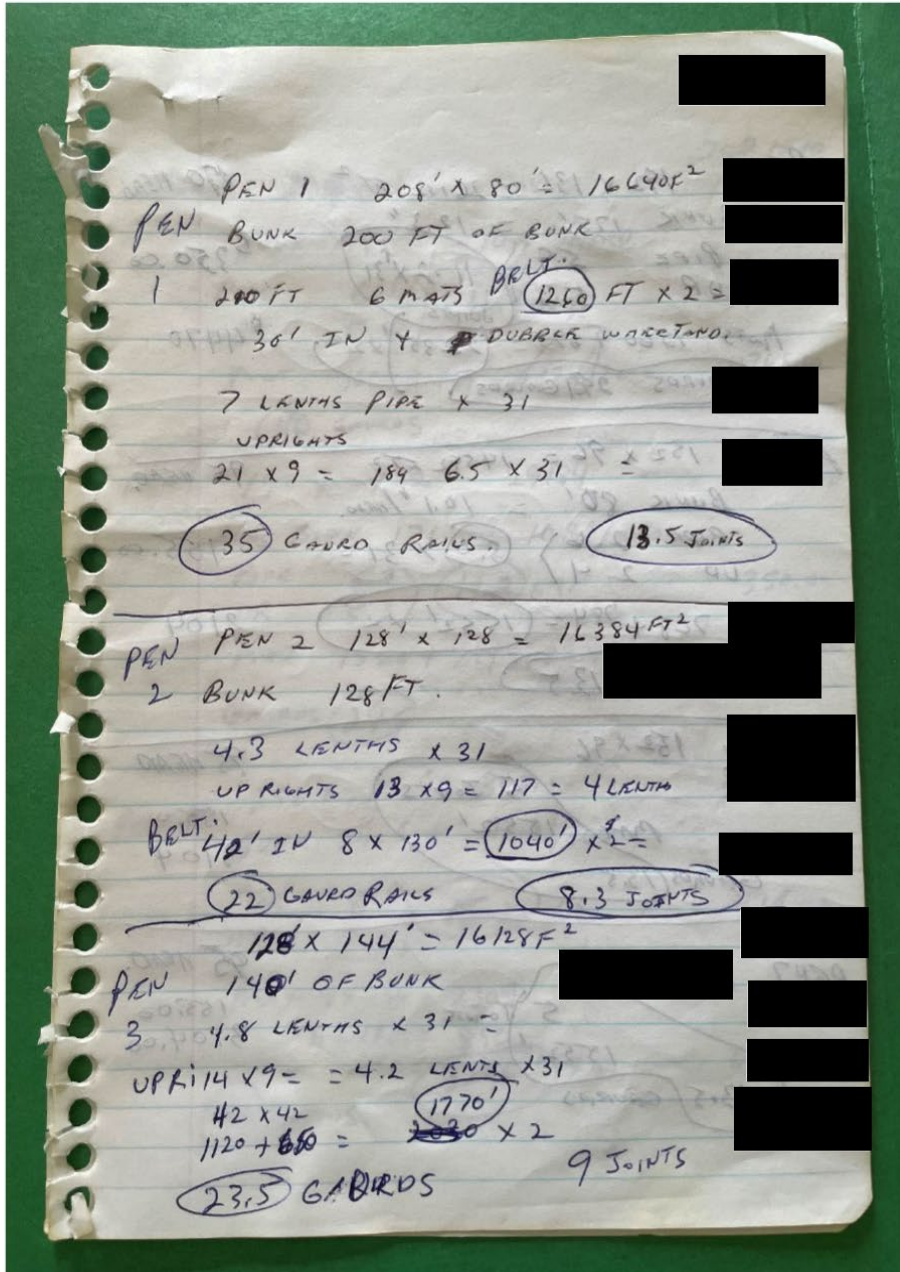 PEN 1 208' X 80' = 16640F²
PEN BUNK 200 FT OF BUNK
1 200 FT 6 MATS BELT. 1260 FT X 2 =
30' IN X
7 LENTHS PIPE X 31
UPRIGHTS
21 X 9 = 189 6.5 X 31 =
35 GAURD RAILS. 13.5 JOINTS
PEN PEN 2 128' X 128 = 16384 FT²
2 BUNK 128 FT.
4.3 LENTHS X 31
UPRIGHTS 13 X 9 = 117 = 4 LENTH
BELT. 42' IN 8 X 130' = 1040' X 2 =
22 GAURD RAILS 8.3 JOINTS
128' X 144' = 16128F²
PEN 140' OF BUNK
3 4.8 LENTHS X 31 =
UPRI 14 X 9 = = 4.2 LENTS X 31
42 X 42 1770'
1120 + 650 = X 2
9 JOINTS
23.5 GAURDS